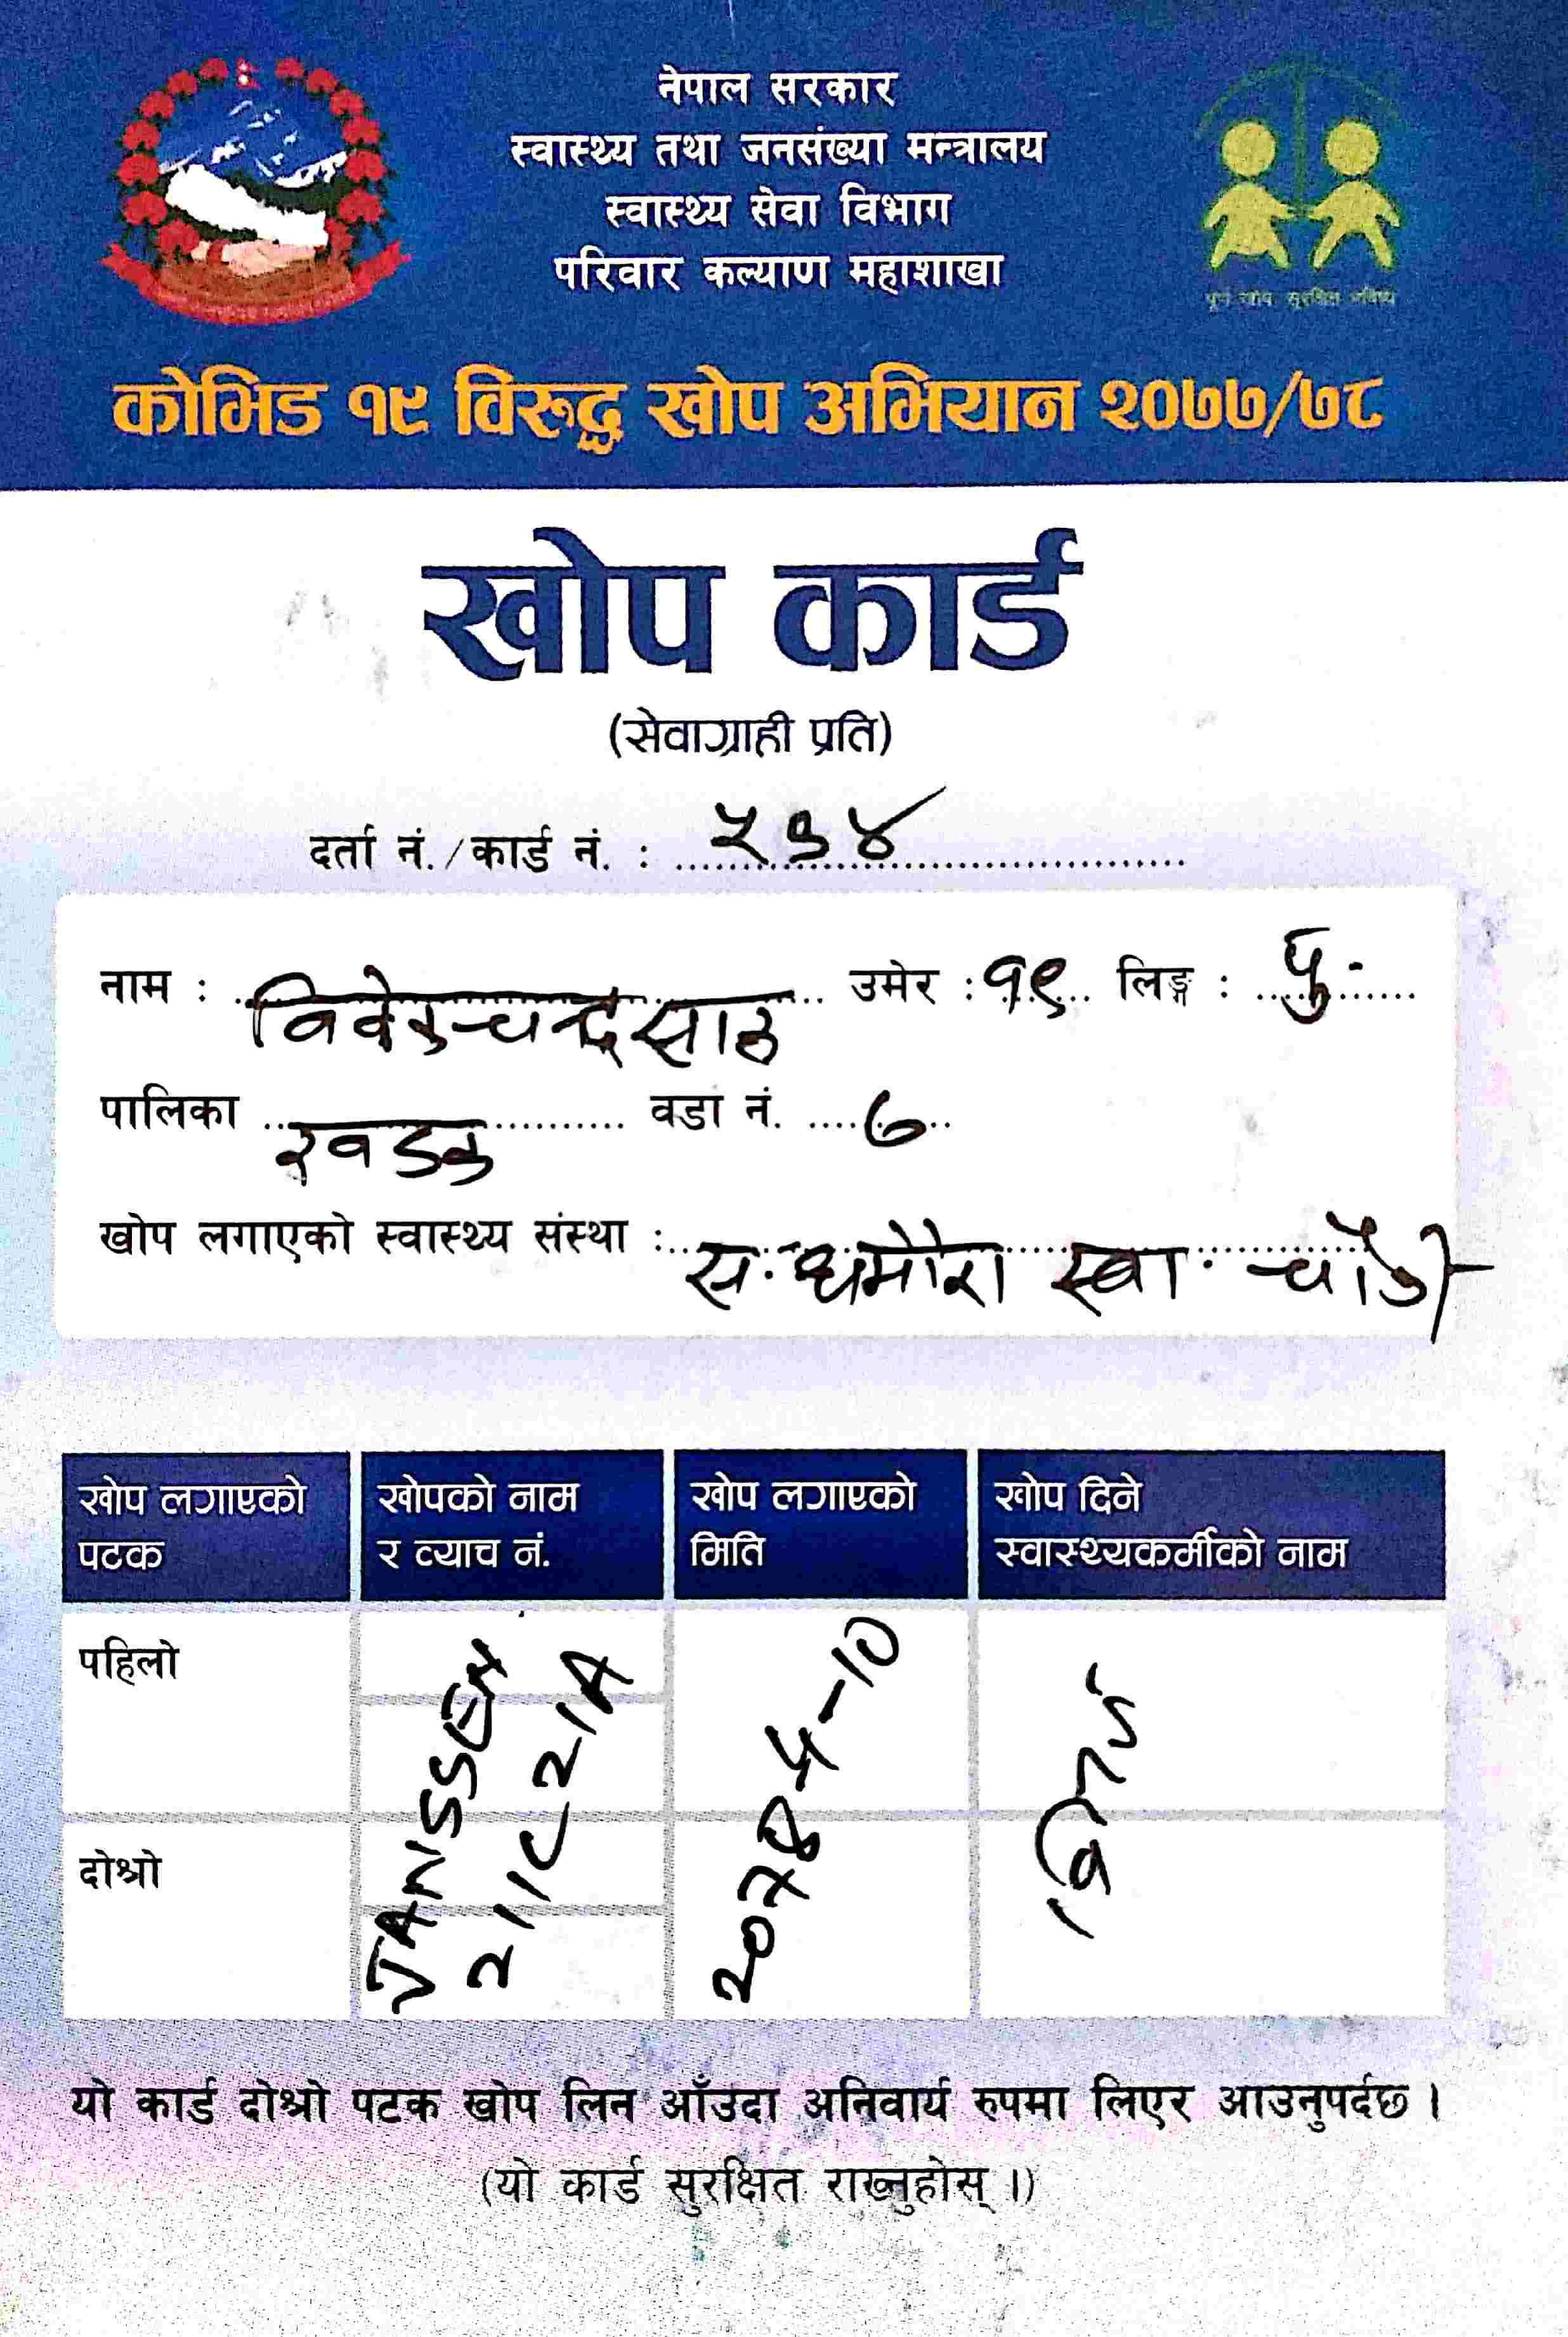 नेपाल सरकार
स्वास्थ्य तथा जनसंख्या मन्त्रालय
स्वास्थ्य सेवा विभाग
परिवार कल्याण महाशाखा
पूर्ण खोप सुरक्षित भविष्य
कोभिड १९ विरुद्ध खोप अभियान २०७७/७८
खोप कार्ड
(सेवाग्राही प्रति)
दर्ता नं./कार्ड नं. : ५७४
नाम : विवेक चन्द्र साह उमेर : १९ लिङ्ग : पु.
पालिका खडक वडा नं. ७
खोप लगाएको स्वास्थ्य संस्था : स. धमौरा स्वा. चौकी
खोप लगाएको पटक
खोपको नाम र व्याच नं.
खोप लगाएको मिति
खोप दिने स्वास्थ्यकर्मीको नाम
पहिलो
दोश्रो
JANSSEN
211C21A
2078-4-10
यो कार्ड दोश्रो पटक खोप लिन आँउदा अनिवार्य रुपमा लिएर आउनुपर्दछ ।
(यो कार्ड सुरक्षित राख्नुहोस् ।)